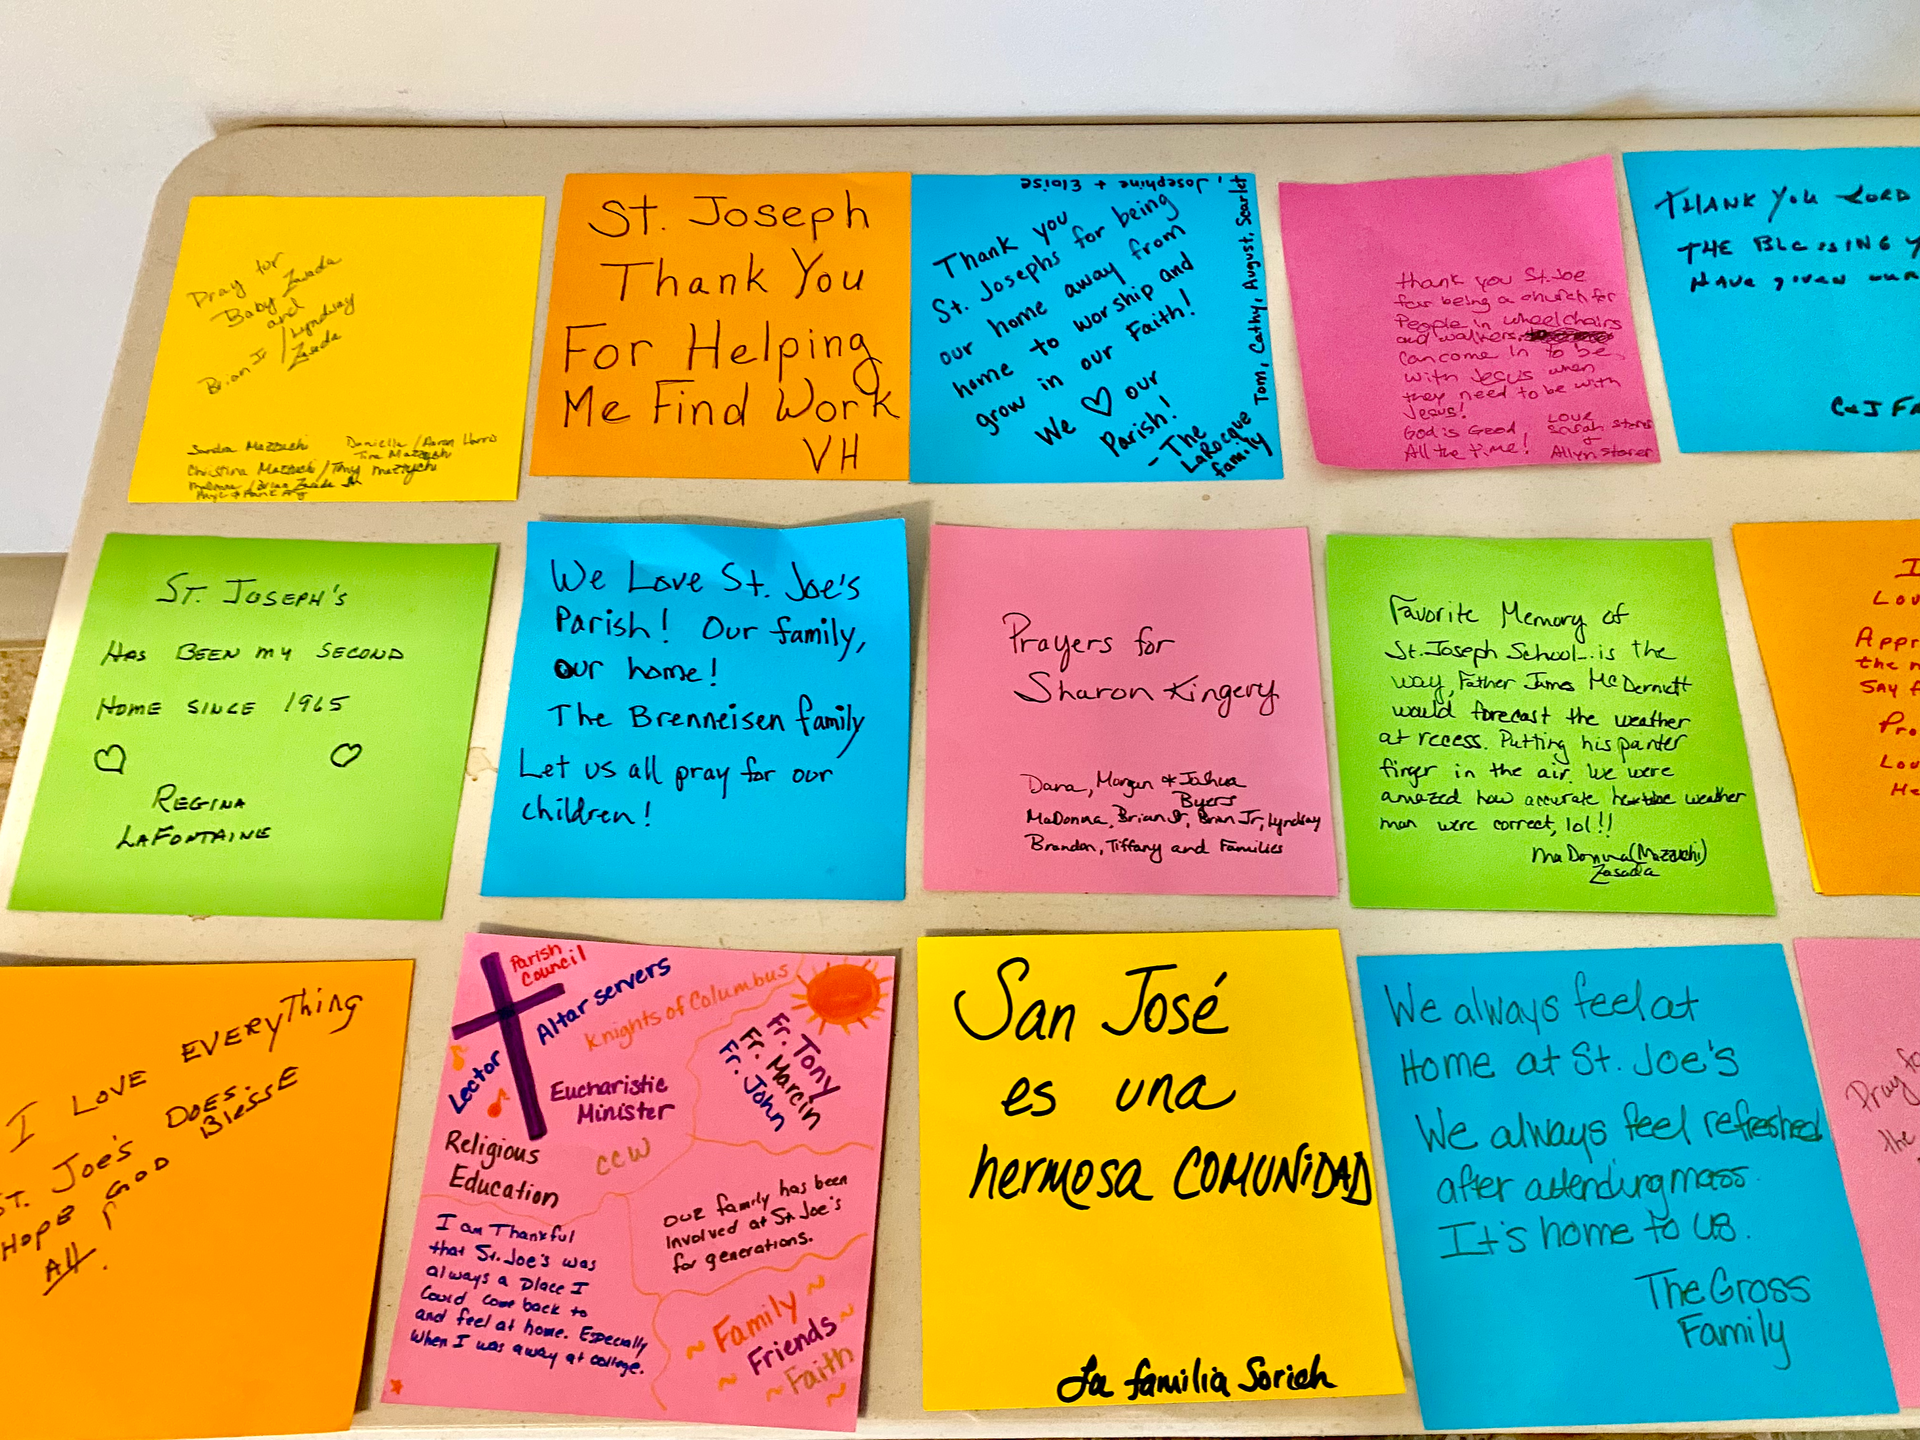 Pray for
Baby Zasada
and
Brian Jr / Lyndsay
Zasada
Sandra Mazzuchi
Danielle / Aaron Harris
Tina Mazzuchi
Christina Mazzuchi / Tony Mazzuchi
MaDonna / Brian Zasada Sr
St. Joseph
Thank You
For Helping
Me Find Work
VH
Thank you
St. Josephs for being
our home away from
home to worship and
grow in our Faith!
We ♡ our
Parish!
- The
LaRocque
family
Tom, Cathy, August, Scarlet
, Josephine + Eloise
thank you St. Joe
for being a church for
People in wheelchairs
and walkers
can come in to be
with Jesus when
they need to be with
Jesus!
God is Good
All the time!
Love
Sarah
+
Allyn
THANK YOU LORD
THE BLESSING Y
HAVE given our
C&J FA
ST. JOSEPH'S
HAS BEEN MY SECOND
HOME SINCE 1965
REGINA
LAFONTAINE
We Love St. Joe's
Parish! Our family,
our home!
The Brenneisen family
Let us all pray for our
children!
Prayers for
Sharon Kingery
Dana, Morgan + Joshua
Byers
MaDonna, Brian Sr, Brian Jr, Lyndsay
Brandon, Tiffany and Families
Favorite Memory of
St. Joseph School... is the
way, Father James McDermett
would forecast the weather
at recess. Putting his panter
finger in the air. We were
amazed how accurate he weather
man were correct, lol!!
MaDonna (Mazzuchi)
Zasada
I
Lov
Appr
the m
Say f
Pro
Lou
He
I LOVE EVERYThing
ST. JOE'S DOES.
HOPE GOD BlessE
All.
Parish
Council
Altar servers
Knights of Columbus
Lector
Eucharistic
Minister
Fr. Tony
Fr. Marcin
Fr. John
Religious
Education
CCW
I am Thankful
that St. Joe's was
always a place I
could come back to
and feel at home. Especially
when I was away at college.
our family has been
involved at St. Joe's
for generations.
~ Family ~
Friends ~
~ ~ Faith ~
San José
es una
hermosa COMUNiDAD
La familia Sorich
We always feel at
Home at St. Joe's
We always feel refreshed
after attending mass.
It's home to us.
The Gross
Family
Pray fo
the